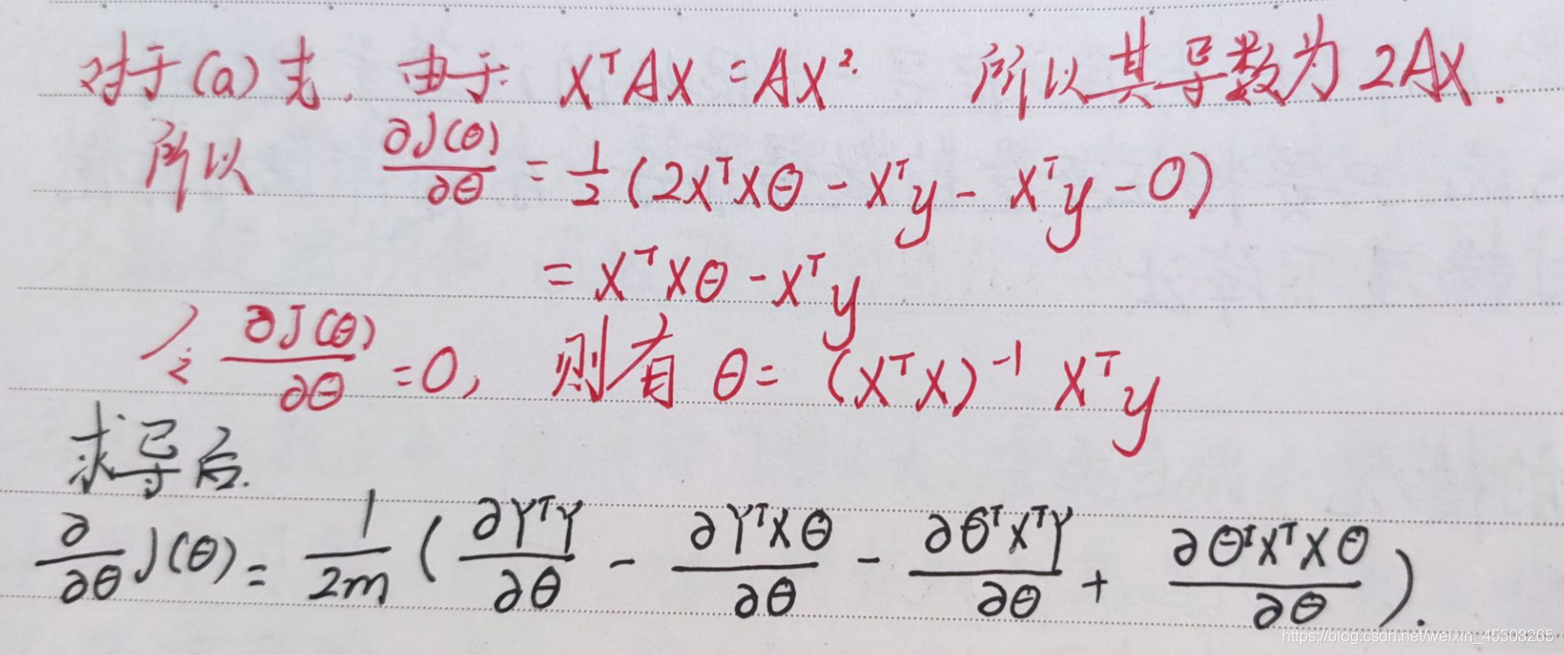 对于(a)式. 由于 X^T AX = AX². 所以其导数为 2AX.
所以 ∂J(θ)/∂θ = 1/2 (2X^T Xθ - X^T y - X^T y - 0)
= X^T Xθ - X^T y
令 ∂J(θ)/∂θ = 0, 则有 θ = (X^T X)^-1 X^T y
求导后.
∂/∂θ J(θ) = 1/2m ( ∂Y^T Y/∂θ - ∂Y^T Xθ/∂θ - ∂θ^T X^T Y/∂θ + ∂θ^T X^T Xθ/∂θ ).
https://blog.csdn.net/weixin_45503265